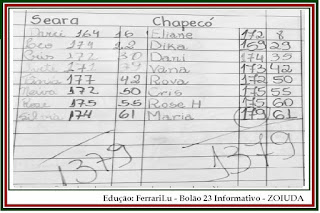 Seara Chapecó
164 16 Eliane 172 8
174 Dika 169 29
172 30 Dani 174 35
171 Vania 173 42
177 42 Rova 172 50
172 50 Cris 175 55
Rose 175 55 Rose H 175 60
Silvia 174 61 Maria 179 61
1379 1379
Edução: FerrariLu - Bolão 23 Informativo - ZOIUDA